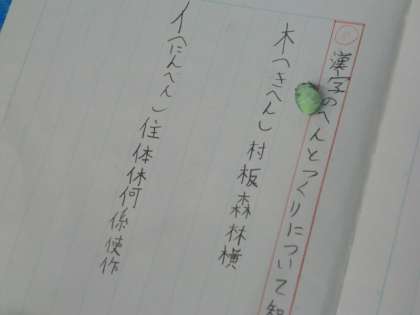 漢字のへんとつくりについて知
木(きへん) 村板森林横
イ(にんべん) 住体休何係使作